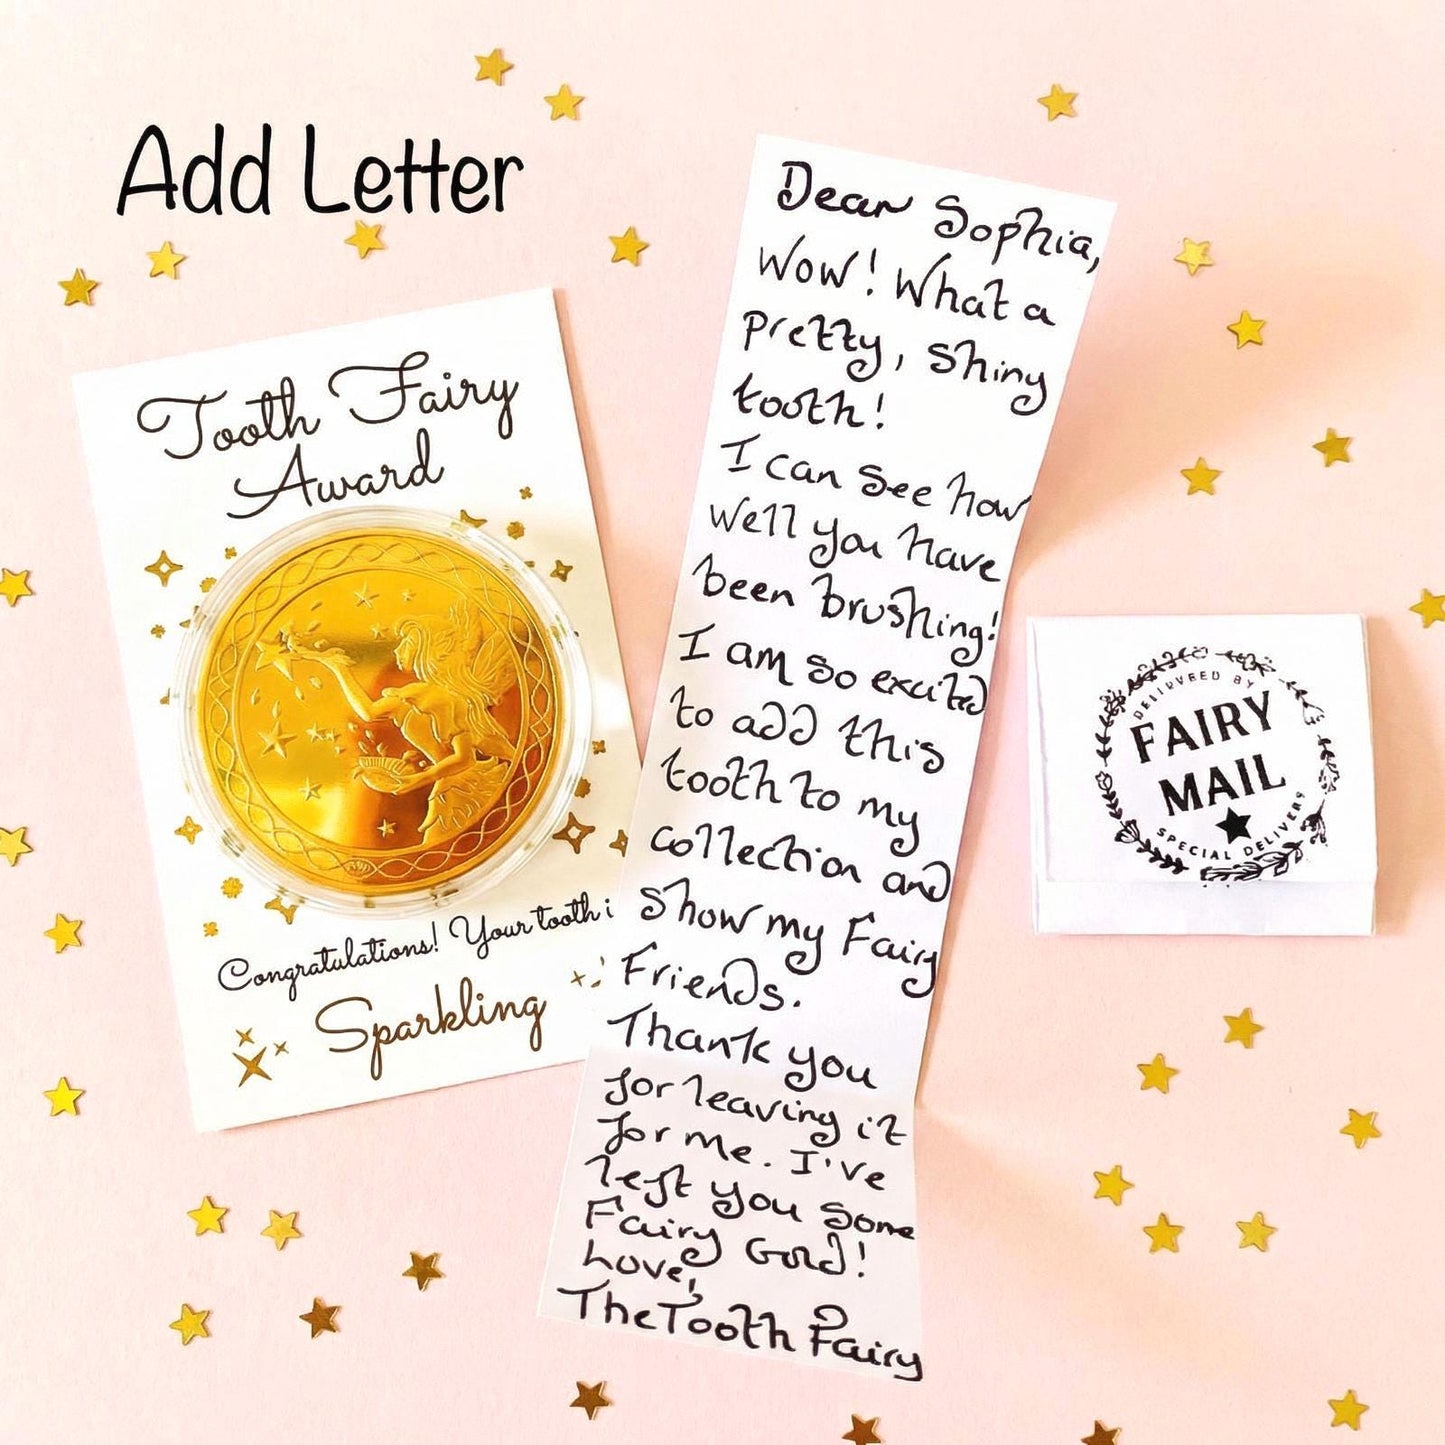 Add Letter
Tooth Fairy
Award
Congratulations! Your tooth i
Sparkling
Dear Sophia,
Wow! What a
pretty, shiny
tooth!
I can see how
well you have
been brushing!
I am so excited
to add this
tooth to my
collection and
show my Fairy
Friends.
Thank you
for leaving it
for me. I've
left you some
Fairy Gold!
Love,
The Tooth Fairy
DELIVREED BY
FAIRY
MAIL
SPECIAL DELIVERY